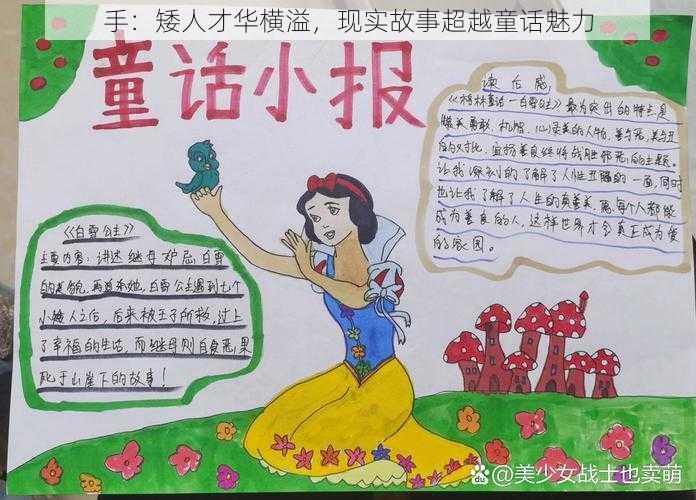 手：矮人才华横溢，现实故事超越童话魅力
童话小报
读后感
《格林童话一白雪公主》最为突出的特点是
善与恶，美与丑
的对比，宣扬善良终将战胜邪恶的主题。
让我深刻的了解了人性丑陋的一面，同时
也让我了解了人生的真善美，愿每个人都能
成为善良的人，这样世界才会真正成为爱
的家园。
《白雪公主》
主要内容：讲述继母妒忌白雪
的美貌，白雪公主遇到七个
小矮人之后，后来被王子所救，过上
了幸福的生活，而继母则自食恶果
死于山崖下的故事！
@美少女战士也卖萌